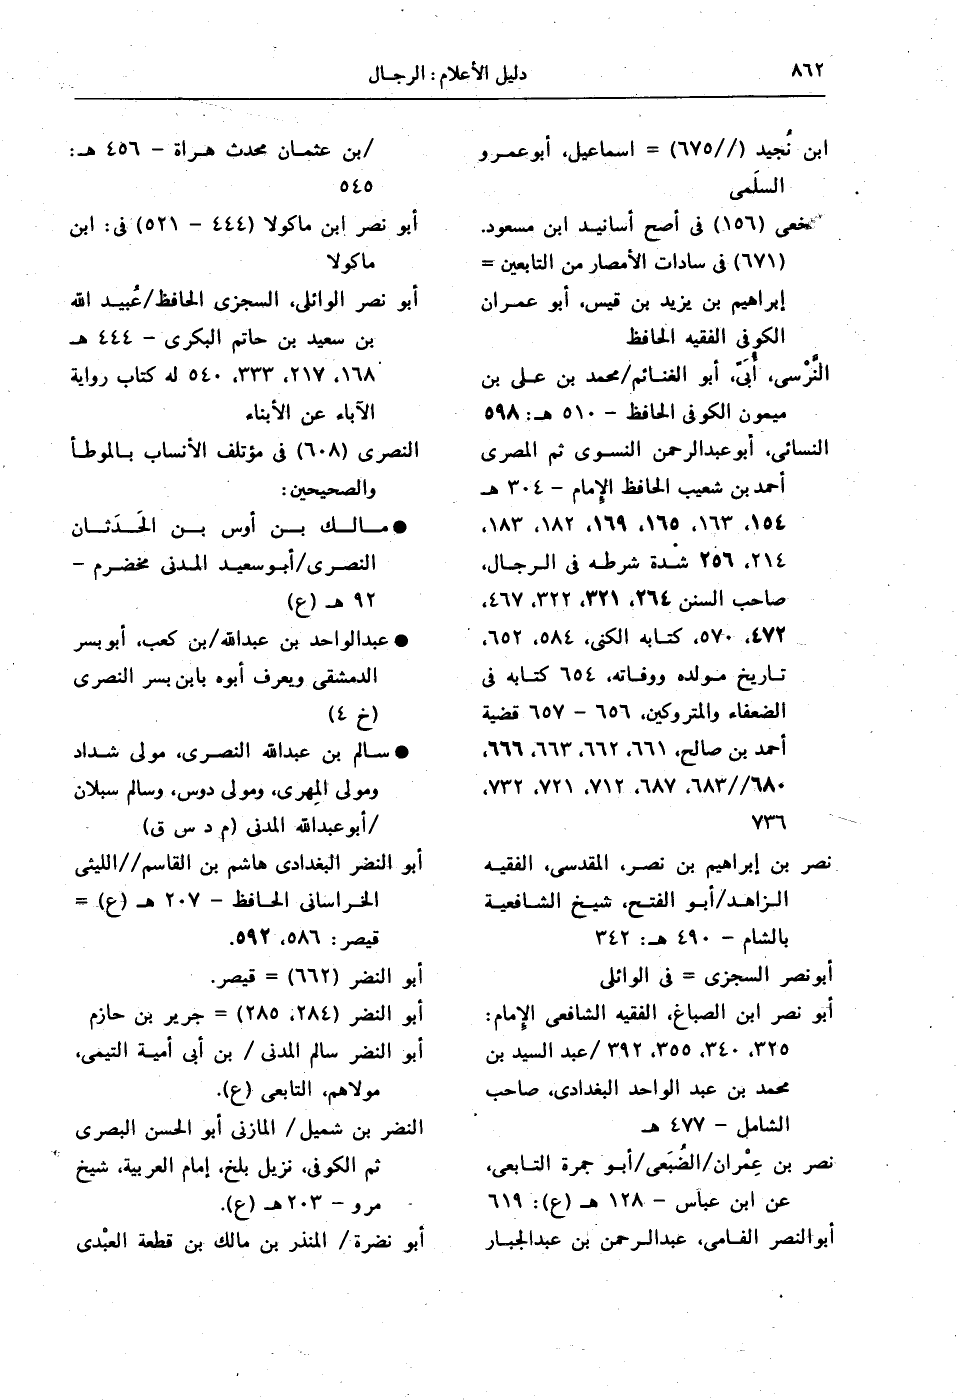 ٨٦٢
دليل الأعلام : الرجال
ابن نُجيد (//٦٧٥) = اسماعيل، أبو عمرو
السلَمى
نخعى (١٥٦) فى أصح أسانيد ابن مسعود.
(٦٧١) فى سادات الأمصار من التابعين =
إبراهيم بن يزيد بن قيس، أبو عمران
الكوفى الفقيه الحافظ
النَّرْسى، أُبَىّ، أبو الغنائم/محمد بن على بن
ميمون الكوفى الحافظ – ٥١٠ هـ: ٥٩٨
النسائى، أبو عبدالرحمن النسوى ثم المصرى
أحمد بن شعيب الحافظ الإمام – ٣٠٤ هـ
١٥٤، ١٦٣، ١٦٥، ١٦٩، ١٨٢، ١٨٣،
٢١٤، ٢٥٦ شدة شرطه فى الرجال،
صاحب السنن ٢٦٤، ٣٢١، ٣٢٢، ٤٦٧،
٤٧٢، ٥٧٠، كتابه الكنى، ٥٨٤، ٦٥٢،
تاريخ مولده ووفاته، ٦٥٤ كتابه فى
الضعفاء والمتروكين، ٦٥٦ – ٦٥٧ قضية
أحمد بن صالح، ٦٦١، ٦٦٢، ٦٦٣، ٦٦٦،
٦٨٠//٦٨٣، ٦٨٧، ٧١٢، ٧٢١، ٧٣٢،
٧٣٦
نصر بن إبراهيم بن نصر، المقدسى، الفقيه
الزاهد/أبو الفتح، شيخ الشافعية
بالشام – ٤٩٠ هـ: ٣٤٢
أبو نصر السجزى = فى الوائلى
أبو نصر ابن الصباغ، الفقيه الشافعى الإمام:
٣٢٥، ٣٤٠، ٣٥٥، ٣٩٢ /عبد السيد بن
محمد بن عبد الواحد البغدادى، صاحب
الشامل – ٤٧٧ هـ
نصر بن عِمْران/الضُبَعى/أبو جمرة التابعى،
عن ابن عباس – ١٢٨ هـ (ع): ٦١٩
أبو النصر الفامى، عبدالرحمن بن عبدالجبار
/بن عثمان محدث هراة – ٤٥٦ هـ:
٥٤٥
أبو نصر ابن ماكولا (٤٤٤ – ٥٢١) فى: ابن
ماكولا
أبو نصر الوائلى، السجزى الحافظ/عُبيد الله
بن سعيد بن حاتم البكرى – ٤٤٤ هـ
١٦٨، ٢١٧، ٣٣٣، ٥٤٠ له كتاب رواية
الآباء عن الأبناء
النصرى (٦٠٨) فى مؤتلف الأنساب بالموطأ
والصحيحين:
● مالك بن أوس بن الحَدَثان
النصرى/أبو سعيد المدنى مخضرم –
٩٢ هـ (ع)
● عبدالواحد بن عبدالله/بن كعب، أبو بسر
الدمشقى ويعرف أبوه بابن بسر النصرى
(خ ٤)
● سالم بن عبدالله النصرى، مولى شداد
ومولى المهرى، ومولى دوس، وسالم سبلان
/أبو عبدالله المدنى (م د س ق)
أبو النضر البغدادى هاشم بن القاسم//الليثى
الخراسانى الحافظ – ٢٠٧ هـ (ع) =
قيصر: ٥٨٦، ٥٩٢.
أبو النضر (٦٦٢) = قيصر.
أبو النضر (٢٨٤، ٢٨٥) = جرير بن حازم
أبو النضر سالم المدنى / بن أبى أمية التيمى،
مولاهم، التابعى (ع).
النضر بن شميل/ المازنى أبو الحسن البصرى
ثم الكوفى، نزيل بلخ، إمام العربية، شيخ
مرو – ٢٠٣ هـ (ع).
أبو نضرة/ المنذر بن مالك بن قطعة العبْدى